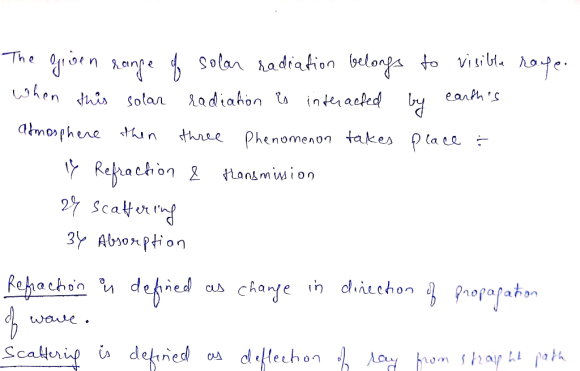 The given range of solar radiation belongs to visible range.
when this solar radiation is interacted by earth's
atmosphere then three Phenomenon takes place ÷
1) Refraction & transmission
2) Scattering
3) Absorption
Refraction is defined as change in direction of propagation
of wave.
Scattering is defined as deflection of ray from straight path